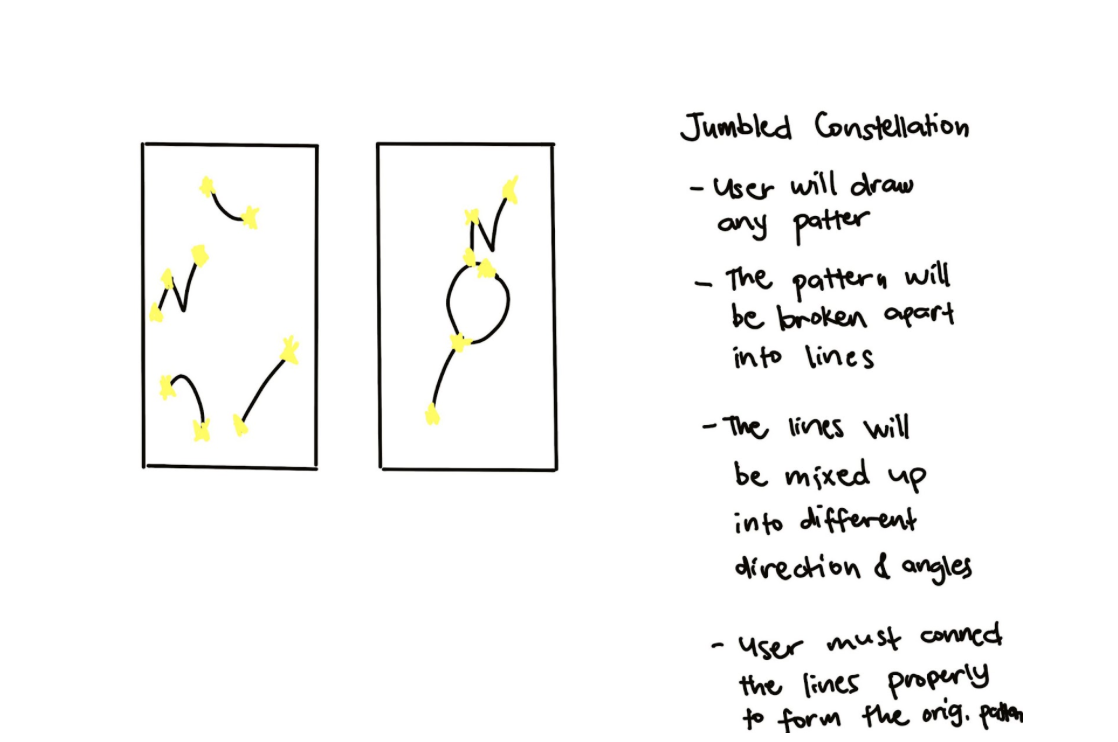 Jumbled Constellation
- User will draw
any patter
- The pattern will
be broken apart
into lines
- The lines will
be mixed up
into different
direction & angles
- User must connect
the lines properly
to form the orig. pattern